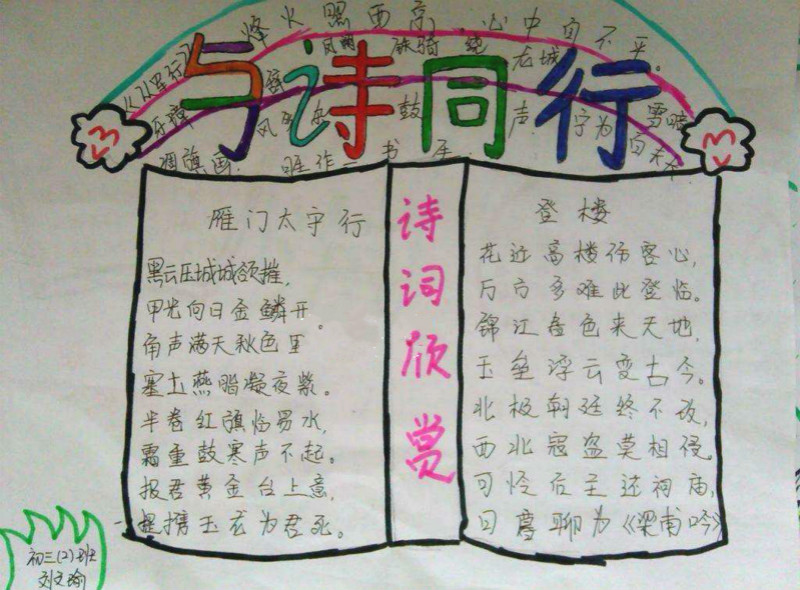 《从军行》烽火照西京,心中自不平。
牙璋辞凤阙 铁骑绕龙城。雪暗
凋旗画,风多杂鼓声.宁为百夫长
胜作一书生.
与诗同行
雁门太守行
黑云压城城欲摧,
甲光向日金鳞开。
角声满天秋色里
塞土燕脂凝夜紫。
半卷红旗临易水,
霜重鼓寒声不起。
报君黄金台上意,
提携玉龙为君死。
诗词欣赏
登楼
花近高楼伤客心,
万方多难此登临。
锦江春色来天地,
玉垒浮云变古今。
北极朝廷终不改,
西北寇盗莫相侵。
可怜后主还祠庙,
日暮聊为《梁甫吟》
初三(2)班
刘文瑜